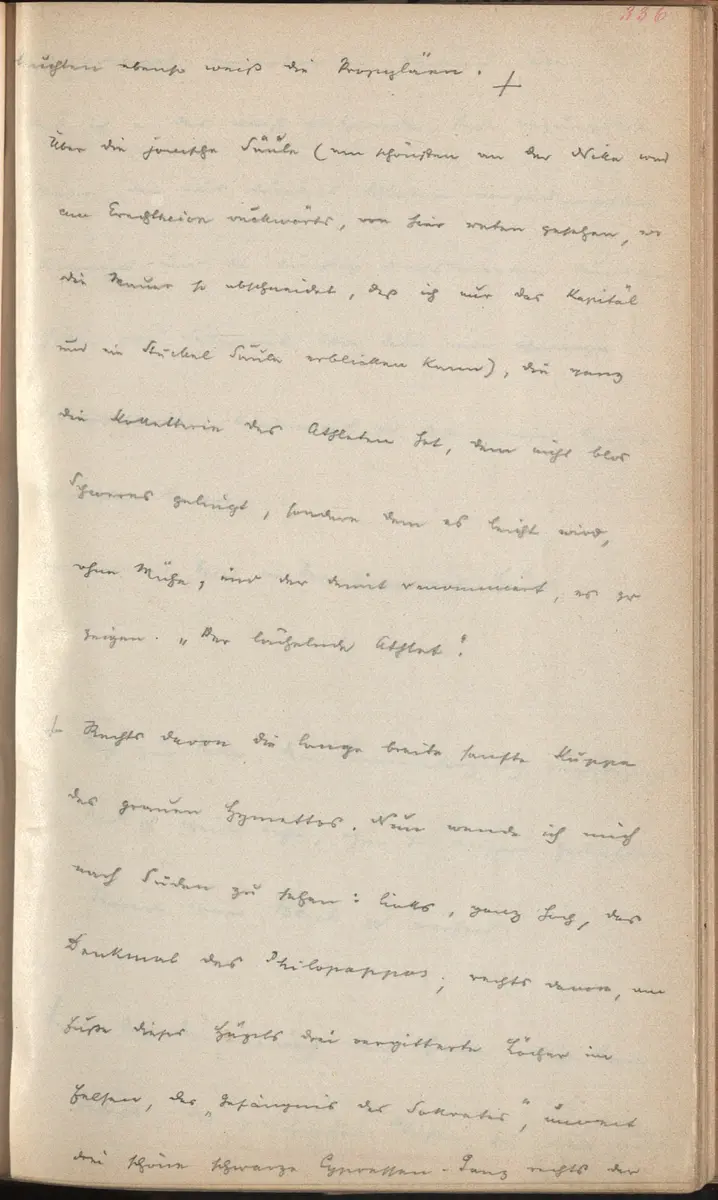 336
leuchten ebenso weiß die Propyläen. +
Über die jonische Säule (am schönsten an der Nike und
am Erechtheion rückwärts, von hier unten gesehen, wo
die Mauer so abschneidet, daß ich nur das Kapitäl
und ein Stückel Säule erblicken kann), die ganz
die Koketterie des Athleten hat, dem nicht blos
Schweres gelingt, sondern dem es leicht wird,
ohne Mühe, und der damit renommiert, es zu
zeigen. „Der lächelnde Athlet“.
Rechts davon die lange breite sanfte Kuppe
des grauen Hymettos. Nun wende ich mich
nach Süden zu sehen: links, ganz hoch, das
Denkmal des Philopappos, rechts davon, am
Fuße dieses Hügels drei vergitterte Löcher im
Felsen, das „Gefängnis des Sokrates“, unweit
drei schöne schwarze Cypressen. Ganz rechts der